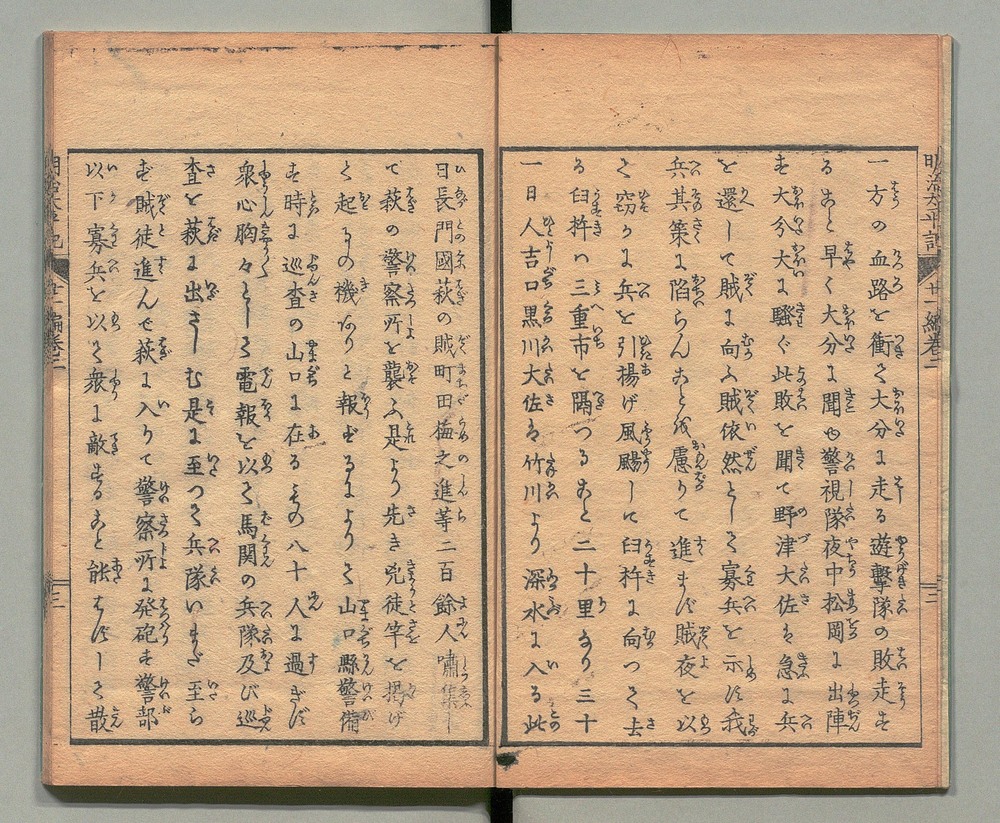 明治太平記 廿一編巻二 二
一方の血路を衝て大分に走る遊撃隊の敗走す
ること早く大分に聞ゆ警視隊夜中松岡に出陣
す大分大に騒ぐ此敗を聞て野津大佐は急に兵
を還して賊に向ふ賊依然として寡兵を示に我
兵其策に陥らんことを慮りて進まず賊夜を以
て窃かに兵を引揚げ風颺して臼杵に向つて去
る臼杵ハ三重市を隔つること二十里なり三十
一日人吉口黒川大佐は竹川より深水に入る此
日長門國萩の賊町田梅之進等二百餘人嘯集し
て萩の警察所を襲ふ是より先き兇徒竿を掲げ
て起るの機ありと報ずるによりて山口縣警備
す時に巡査の山口に在るもの八十人に過ぎず
衆心胸々として電報を以て馬関の兵隊及び巡
査を萩に出さしむ是に至つて兵隊いまだ至ら
ず賊徒進んで萩に入りて警察所に発砲す警部
以下寡兵を以て衆に敵すること能はずして散